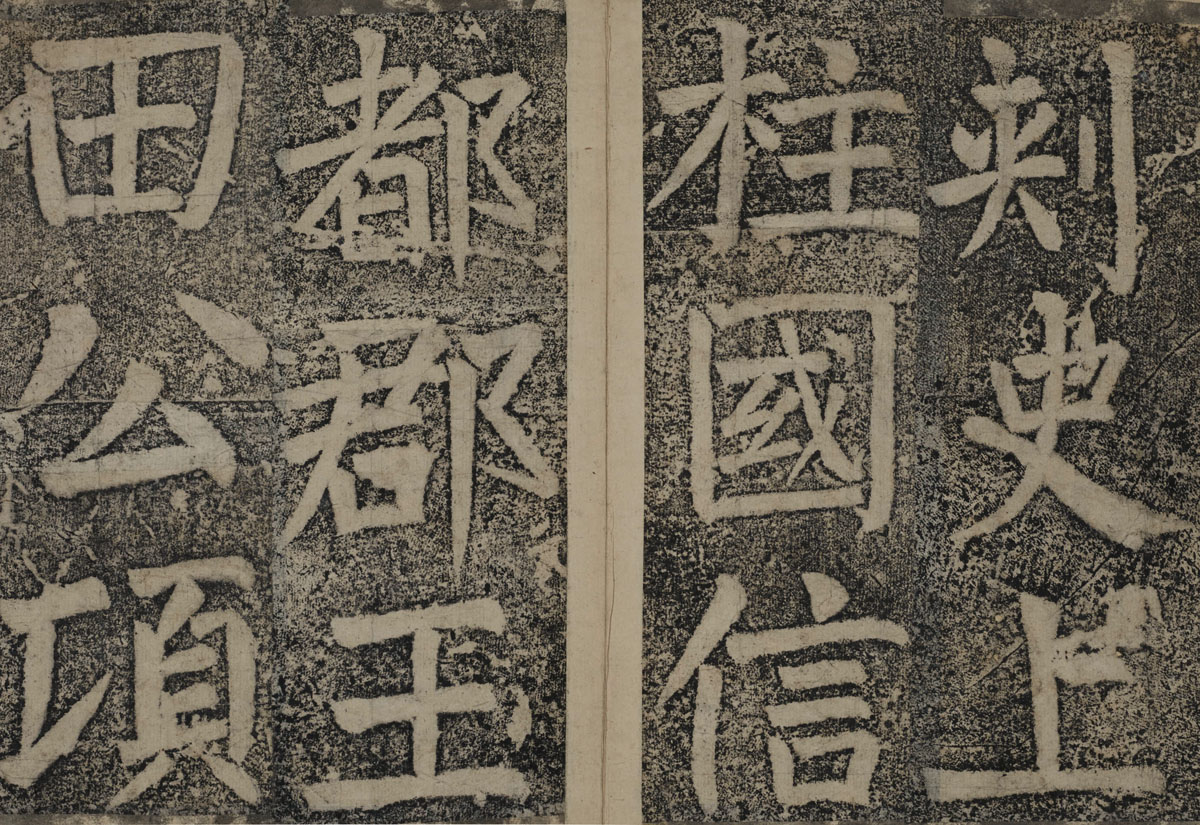 刺史上
柱國信
都郡王
田公頃